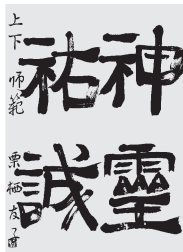 神靈
祐誠
上下师範 栗栖友子